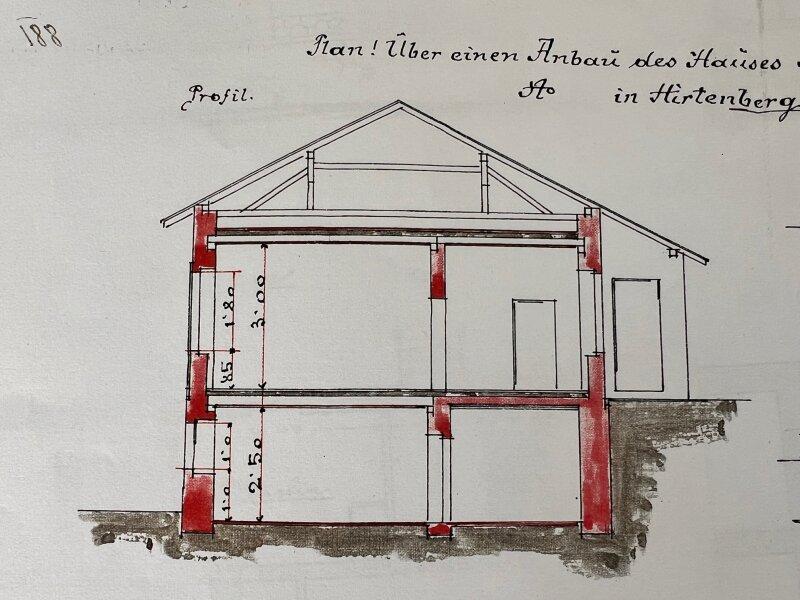 188
Plan! Über einen Anbau des Hauses
No in Hirtenberg
Profil.
1˙80
3˙00
85
1˙0
1˙0
2˙50